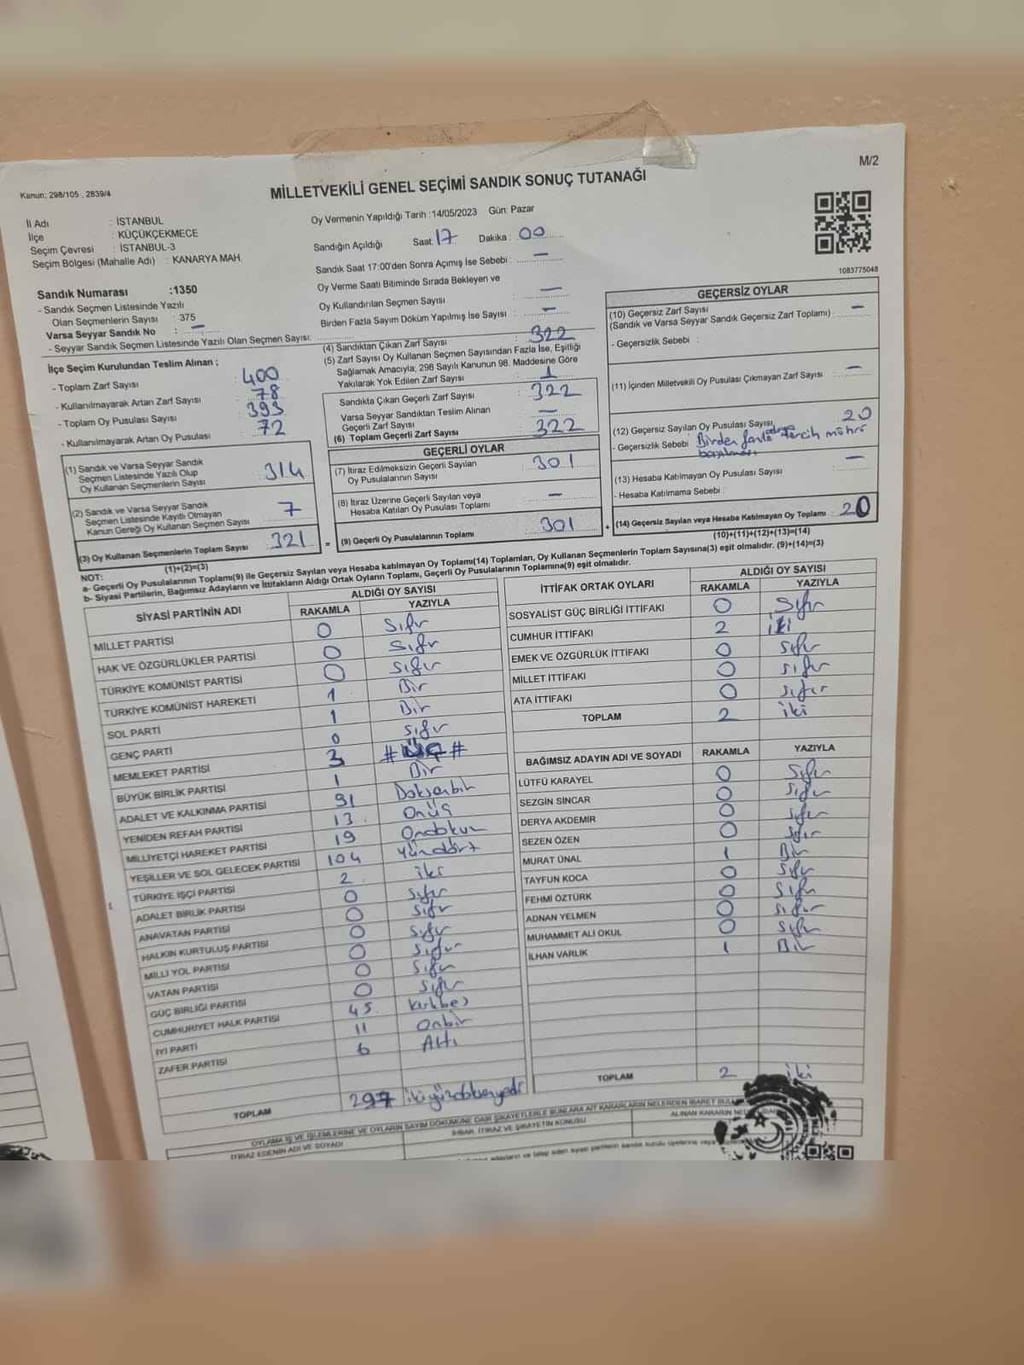 M/2
Kanun: 298/105 , 2839/4
MİLLETVEKİLİ GENEL SEÇİMİ SANDIK SONUÇ TUTANAĞI
İl Adı : İSTANBUL
İlçe : KÜÇÜKÇEKMECE
Seçim Çevresi : İSTANBUL-3
Seçim Bölgesi (Mahalle Adı) : KANARYA MAH.
Sandık Numarası :1350
- Sandık Seçmen Listesinde Yazılı
Olan Seçmenlerin Sayısı : 375
Varsa Seyyar Sandık No : —
- Seyyar Sandık Seçmen Listesinde Yazılı Olan Seçmen Sayısı:
Oy Vermenin Yapıldığı Tarih :14/05/2023 Gün: Pazar
Sandığın Açıldığı Saat: 17 Dakika : 00
Sandık Saat 17:00'den Sonra Açımış İse Sebebi : —
Oy Verme Saati Bitiminde Sırada Bekleyen ve
Oy Kullandırılan Seçmen Sayısı : —
Birden Fazla Sayım Döküm Yapılmış İse Sayısı : —
1083775048
İlçe Seçim Kurulundan Teslim Alınan ;
- Toplam Zarf Sayısı : 400
- Kullanılmayarak Artan Zarf Sayısı : 78
- Toplam Oy Pusulası Sayısı : 393
- Kullanılmayarak Artan Oy Pusulası : 72
(1) Sandık ve Varsa Seyyar Sandık
Seçmen Listesinde Yazılı Olup
Oy Kullanan Seçmenlerin Sayısı : 314
(2) Sandık ve Varsa Seyyar Sandık
Seçmen Listesinde Kayıtlı Olmayan
Kanun Gereği Oy Kullanan Seçmen Sayısı : 7
(3) Oy Kullanan Seçmenlerin Toplam Sayısı : 321
(1)+(2)=(3)
(4) Sandıktan Çıkan Zarf Sayısı : 322
(5) Zarf Sayısı Oy Kullanan Seçmen Sayısından Fazla İse, Eşitliği
Sağlamak Amacıyla, 298 Sayılı Kanunun 98. Maddesine Göre
Yakılarak Yok Edilen Zarf Sayısı : 1
Sandıkta Çıkan Geçerli Zarf Sayısı : 322
Varsa Seyyar Sandıktan Teslim Alınan
Geçerli Zarf Sayısı : —
(6) Toplam Geçerli Zarf Sayısı : 322
GEÇERLİ OYLAR
(7) İtiraz Edilmeksizin Geçerli Sayılan
Oy Pusulalarının Sayısı : 301
(8) İtiraz Üzerine Geçerli Sayılan veya
Hesaba Katılan Oy Pusulası Toplamı : —
= (9) Geçerli Oy Pusulalarının Toplamı : 301 +
GEÇERSİZ OYLAR
(10) Geçersiz Zarf Sayısı : —
(Sandık ve Varsa Seyyar Sandık Geçersiz Zarf Toplamı)
- Geçersizlik Sebebi :
(11) İçinden Milletvekili Oy Pusulası Çıkmayan Zarf Sayısı : —
(12) Geçersiz Sayılan Oy Pusulası Sayısı : 20
- Geçersizlik Sebebi : Birden fazla tercih mührü
basılması
(13) Hesaba Katılmayan Oy Pusulası Sayısı : —
- Hesaba Katılmama Sebebi :
(14) Geçersiz Sayılan veya Hesaba Katılmayan Oy Toplamı : 20
(10)+(11)+(12)+(13)=(14)
NOT:
a- Geçerli Oy Pusulalarının Toplamı(9) ile Geçersiz Sayılan veya Hesaba katılmayan Oy Toplamı(14) Toplamları, Oy Kullanan Seçmenlerin Toplam Sayısına(3) eşit olmalıdır. (9)+(14)=(3)
b- Siyasi Partilerin, Bağımsız Adayların ve İttifakların Aldığı Ortak Oyların Toplamı, Geçerli Oy Pusulalarının Toplamına(9) eşit olmalıdır.
SİYASİ PARTİNİN ADI ALDIĞI OY SAYISI
RAKAMLA YAZIYLA
MİLLET PARTİSİ 0 Sıfır
HAK VE ÖZGÜRLÜKLER PARTİSİ 0 Sıfır
TÜRKİYE KOMÜNİST PARTİSİ 0 Sıfır
TÜRKİYE KOMÜNİST HAREKETİ 1 Bir
SOL PARTİ 1 Bir
GENÇ PARTİ 0 Sıfır
MEMLEKET PARTİSİ 3 # ÜÇ #
BÜYÜK BİRLİK PARTİSİ 1 Bir
ADALET VE KALKINMA PARTİSİ 91 Doksanbir
YENİDEN REFAH PARTİSİ 13 Onüç
MİLLİYETÇİ HAREKET PARTİSİ 19 Ondokuz
YEŞİLLER VE SOL GELECEK PARTİSİ 104 Yüzdört
TÜRKİYE İŞÇİ PARTİSİ 2 iki
ADALET BİRLİK PARTİSİ 0 Sıfır
ANAVATAN PARTİSİ 0 Sıfır
HALKIN KURTULUŞ PARTİSİ 0 Sıfır
MİLLİ YOL PARTİSİ 0 Sıfır
VATAN PARTİSİ 0 Sıfır
GÜÇ BİRLİĞİ PARTİSİ 0 Sıfır
CUMHURİYET HALK PARTİSİ 45 Kırkbeş
İYİ PARTİ 11 Onbir
ZAFER PARTİSİ 6 Altı
TOPLAM 297 ikiyüzdoksanyedi
İTTİFAK ORTAK OYLARI ALDIĞI OY SAYISI
RAKAMLA YAZIYLA
SOSYALİST GÜÇ BİRLİĞİ İTTİFAKI 0 Sıfır
CUMHUR İTTİFAKI 2 iki
EMEK VE ÖZGÜRLÜK İTTİFAKI 0 Sıfır
MİLLET İTTİFAKI 0 Sıfır
ATA İTTİFAKI 0 Sıfır
TOPLAM 2 iki
BAĞIMSIZ ADAYIN ADI VE SOYADI RAKAMLA YAZIYLA
LÜTFÜ KARAYEL 0 Sıfır
SEZGİN SİNCAR 0 Sıfır
DERYA AKDEMİR 0 Sıfır
SEZEN ÖZEN 0 Sıfır
MURAT ÜNAL 1 Bir
TAYFUN KOCA 0 Sıfır
FEHMİ ÖZTÜRK 0 Sıfır
ADNAN YELMEN 0 Sıfır
MUHAMMET ALİ OKUL 0 Sıfır
İLHAN VARLIK 1 Bir
TOPLAM 2 iki
OYLAMA İŞ VE İŞLEMLERİNE VE OYLARIN SAYIM DÖKÜMÜNE DAİR ŞİKAYETLERLE BUNLARA AİT KARARLARIN NELERDEN İBARET
İTİRAZ EDENİN ADI VE SOYADI İHBAR, İTİRAZ VE ŞİKAYETİN KONUSU ALINAN KARARIN